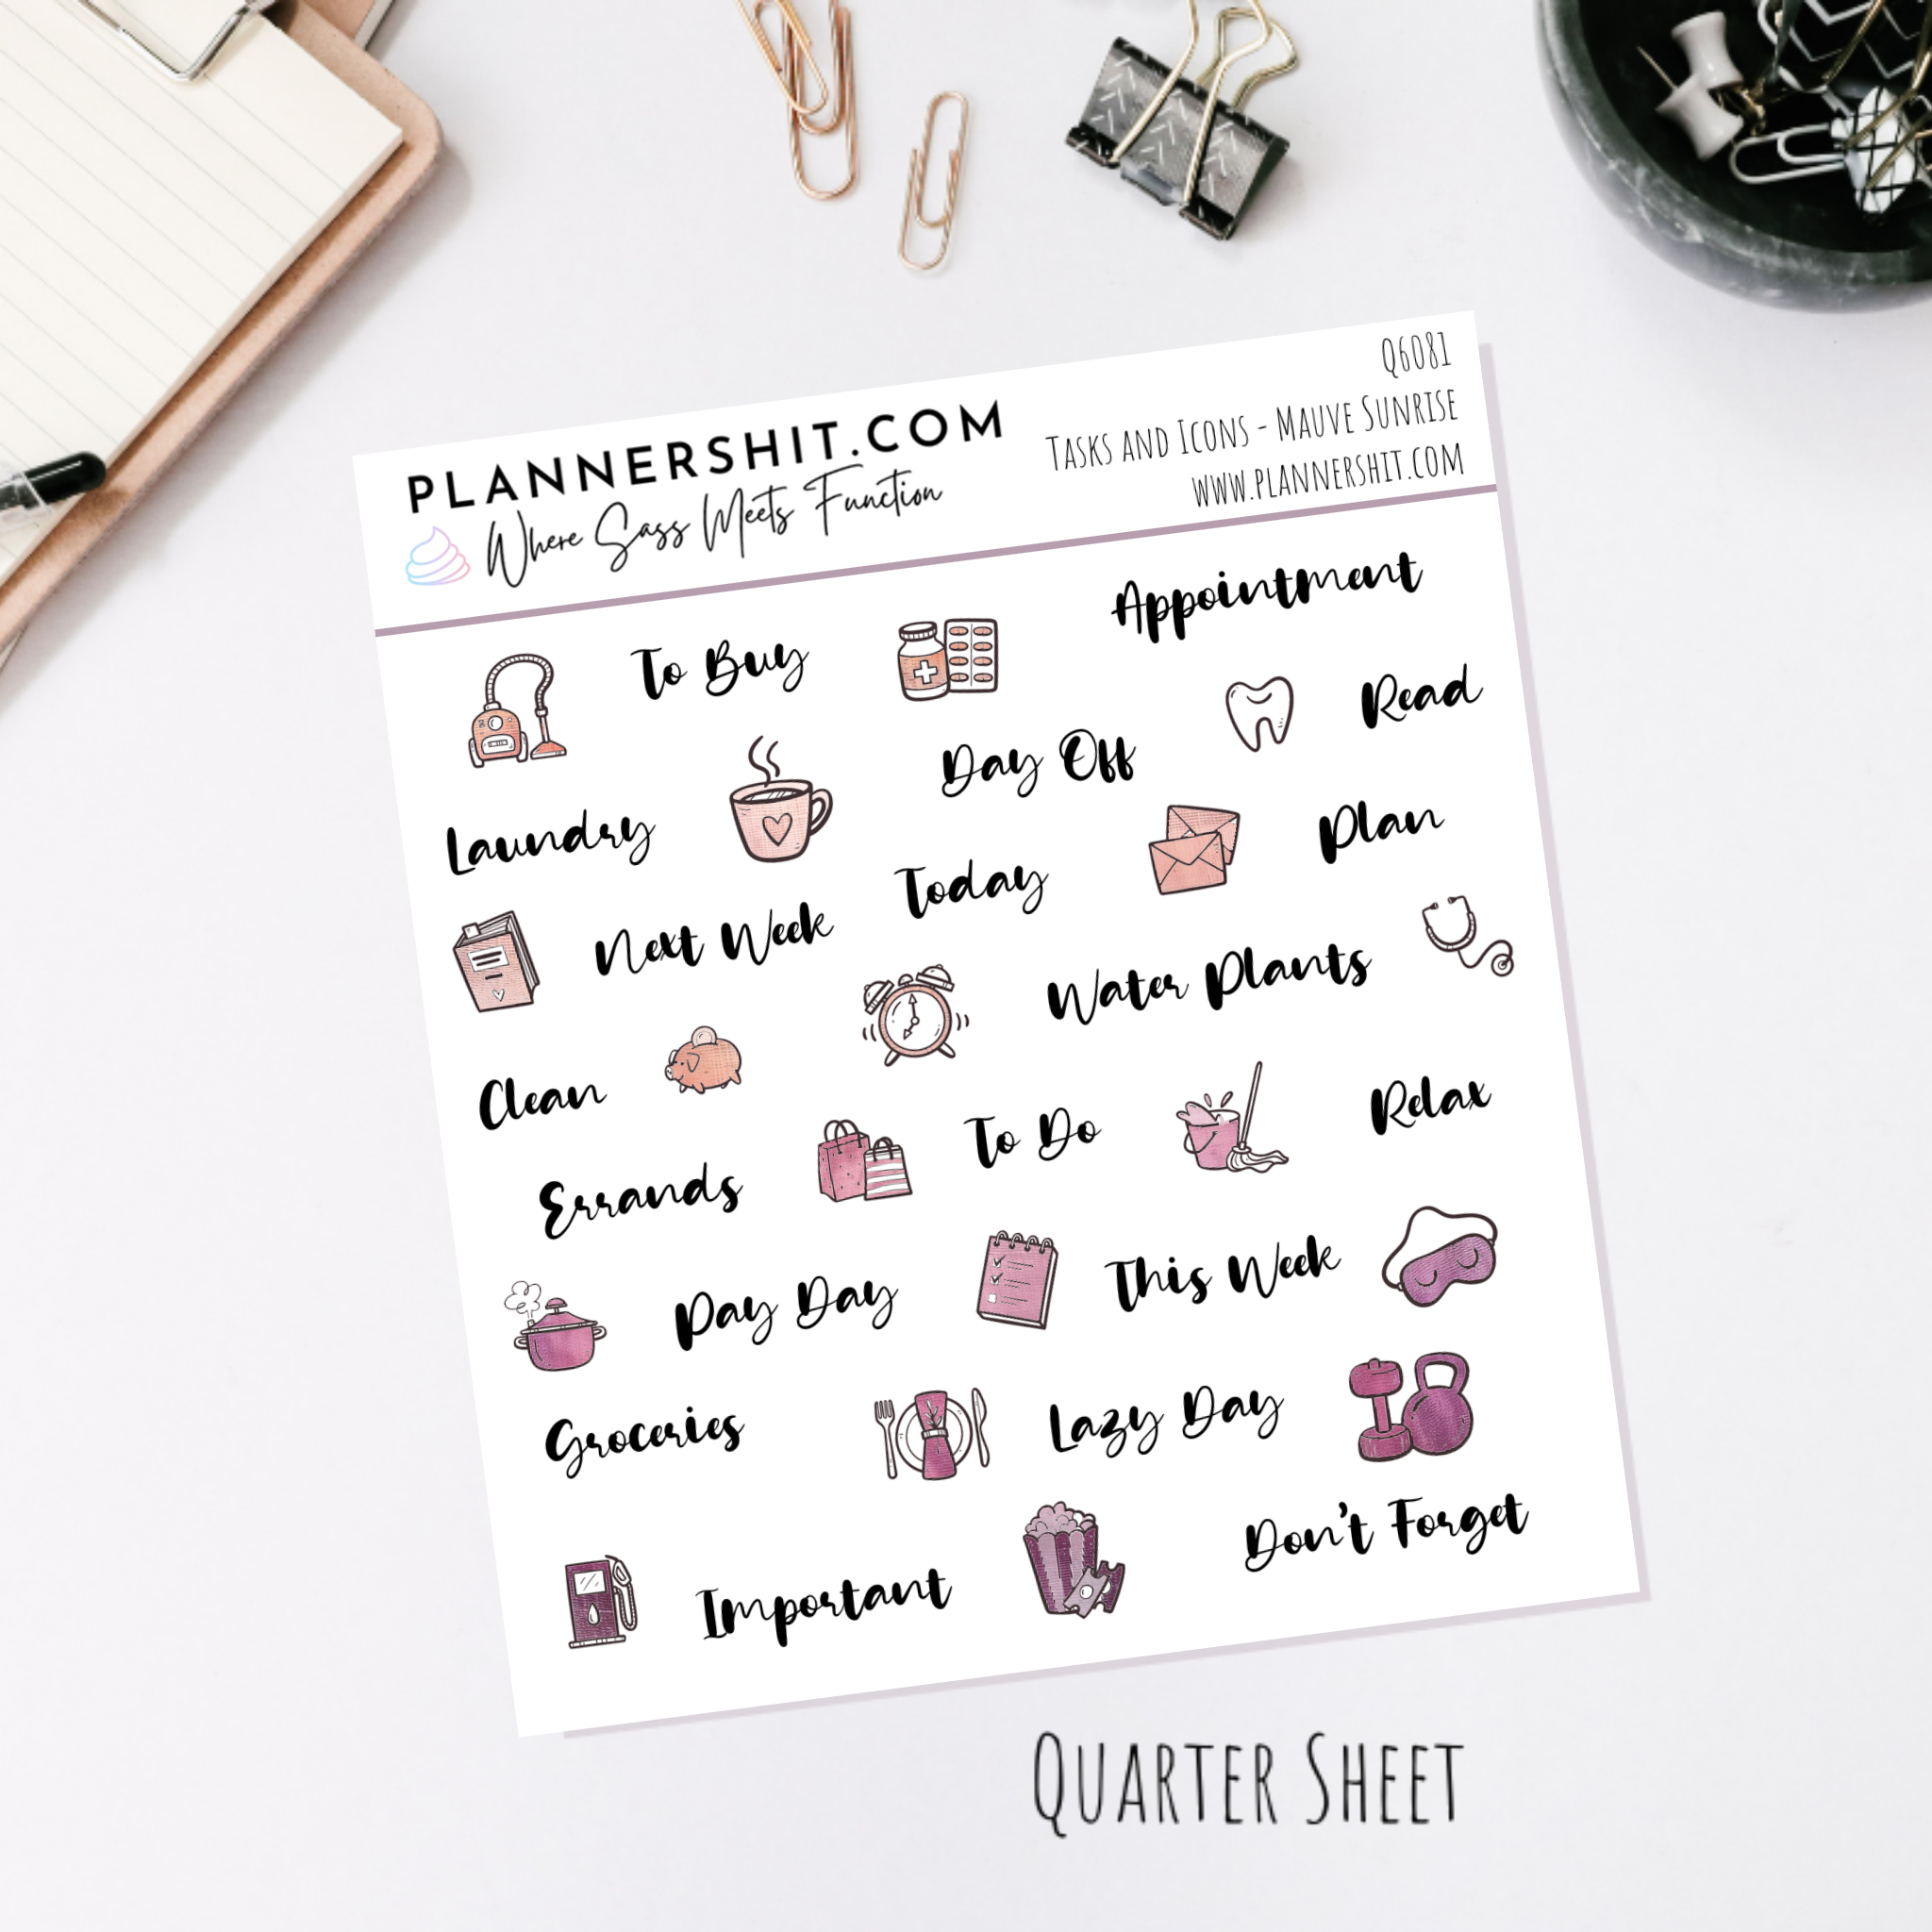 Q6081
PLANNERSHIT.COM
Tasks and Icons - Mauve Sunrise
Where Sass Meets Function
www.plannershit.com
To Buy
Appointment
Read
Day Off
Laundry
Plan
Today
Next Week
Water Plants
Clean
To Do
Relax
Errands
This Week
Pay Day
Lazy Day
Groceries
Don't Forget
Important
Quarter Sheet